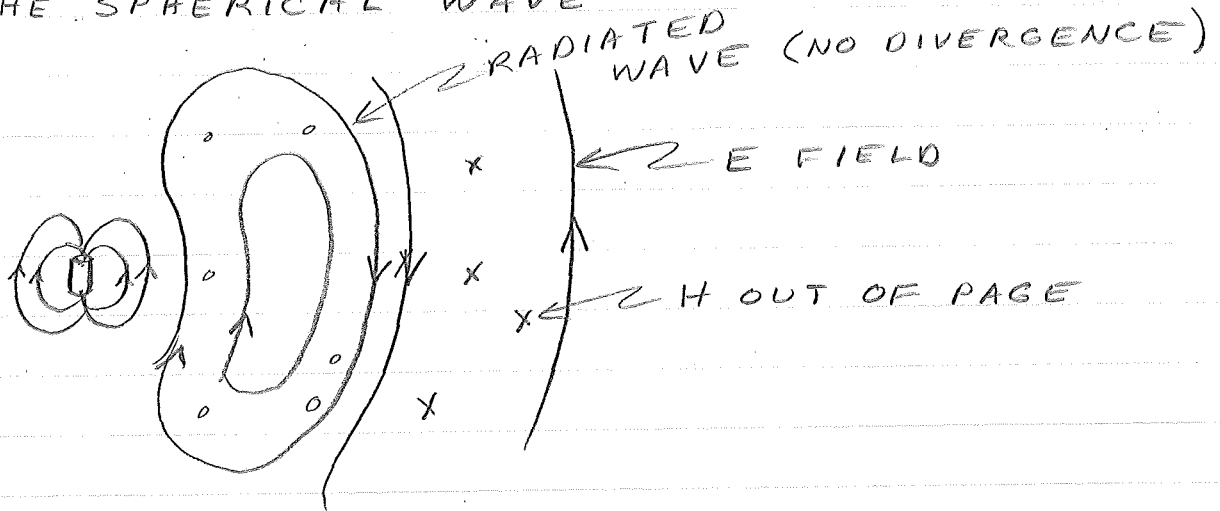 HE SPHERICAL WAVE
RADIATED
WAVE (NO DIVERGENCE)
x
E FIELD
x
H OUT OF PAGE
x
x